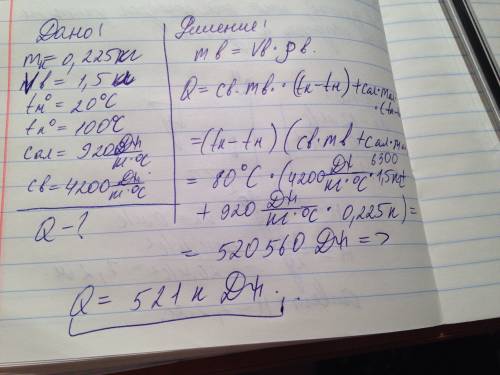 Дано!
m = 0,225 кг
Vв = 1,5
tн° = 20°C
tк° = 100°C
cал = 920 Дж/кг·°C
cв = 4200 Дж/кг·°C
Q - ?
Решение!
mв = Vв · ρв.
Q = cв · mв · (tк - tн) + cал · m
· (tк -
= (tк - tн) (cв · mв + cал · m
= 80°C · (4200 Дж/кг·°C · 1,5 кг
6300
+ 920 Дж/кг·°C · 0,225 к) =
= 520560 Дж =>
Q = 521 к Дж.